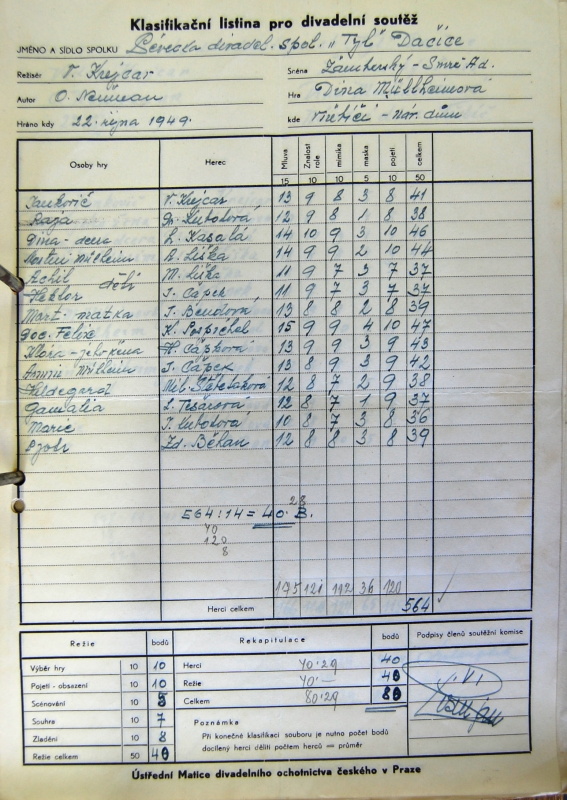 Klasifikační listina pro divadelní soutěž
JMÉNO A SÍDLO SPOLKU Pěvecko divadel. spol. „Tyl" Dačice
Režisér V. Krejcar Scéna Zámberský - Smrž Ad.
Autor O. Neuman Hra Dina Müllheimová
Hráno kdy 22. října 1949. kde - nár. dům
Osoby hry Herec Mluva Znalost role mimika maska pojetí celkem
15 10 10 5 10 50
Jankovič V. Krejcar 13 9 8 3 8 41
Kubátová 12 9 8 1 8 38
Dina - dcera L. Kasalá 14 10 9 3 10 46
K. Liška 14 9 9 2 10 44
Achil děti M. Liška 11 9 7 3 7 37
Hektor J. Čápek 11 9 7 3 7 37
Mart. matka J. Bendová 13 8 8 2 8 39
Doc. Felix K. Pospíchal 15 9 9 4 10 47
Klára - jeho žena H. Čápková 13 9 9 3 9 43
J. Čápek 13 8 9 3 9 42
Hildegard Mil. 12 8 7 2 9 38
Gamalia L. Tesárová 12 8 7 1 9 37
Marie J. Kubátová 10 8 7 3 8 36
Zd. Běhan 12 8 8 3 8 39
28
564 : 14 = 40. B.
40
120
8
175 121 112 36 120
Herci celkem 564
Režie bodů Rekapitulace bodů Podpisy členů soutěžní komise
Výběr hry 10 10 Herci 40'29 40
Pojetí - obsazení 10 10 Režie 40'— 40
Scénování 10 5 Celkem 80'29 80
Souhra 10 7 Poznámka
Zladění 10 8 Při konečné klasifikaci souboru je nutno počet bodů
Režie celkem 50 40 docílený herci děliti počtem herců = průměr
Ústřední Matice divadelního ochotnictva českého v Praze